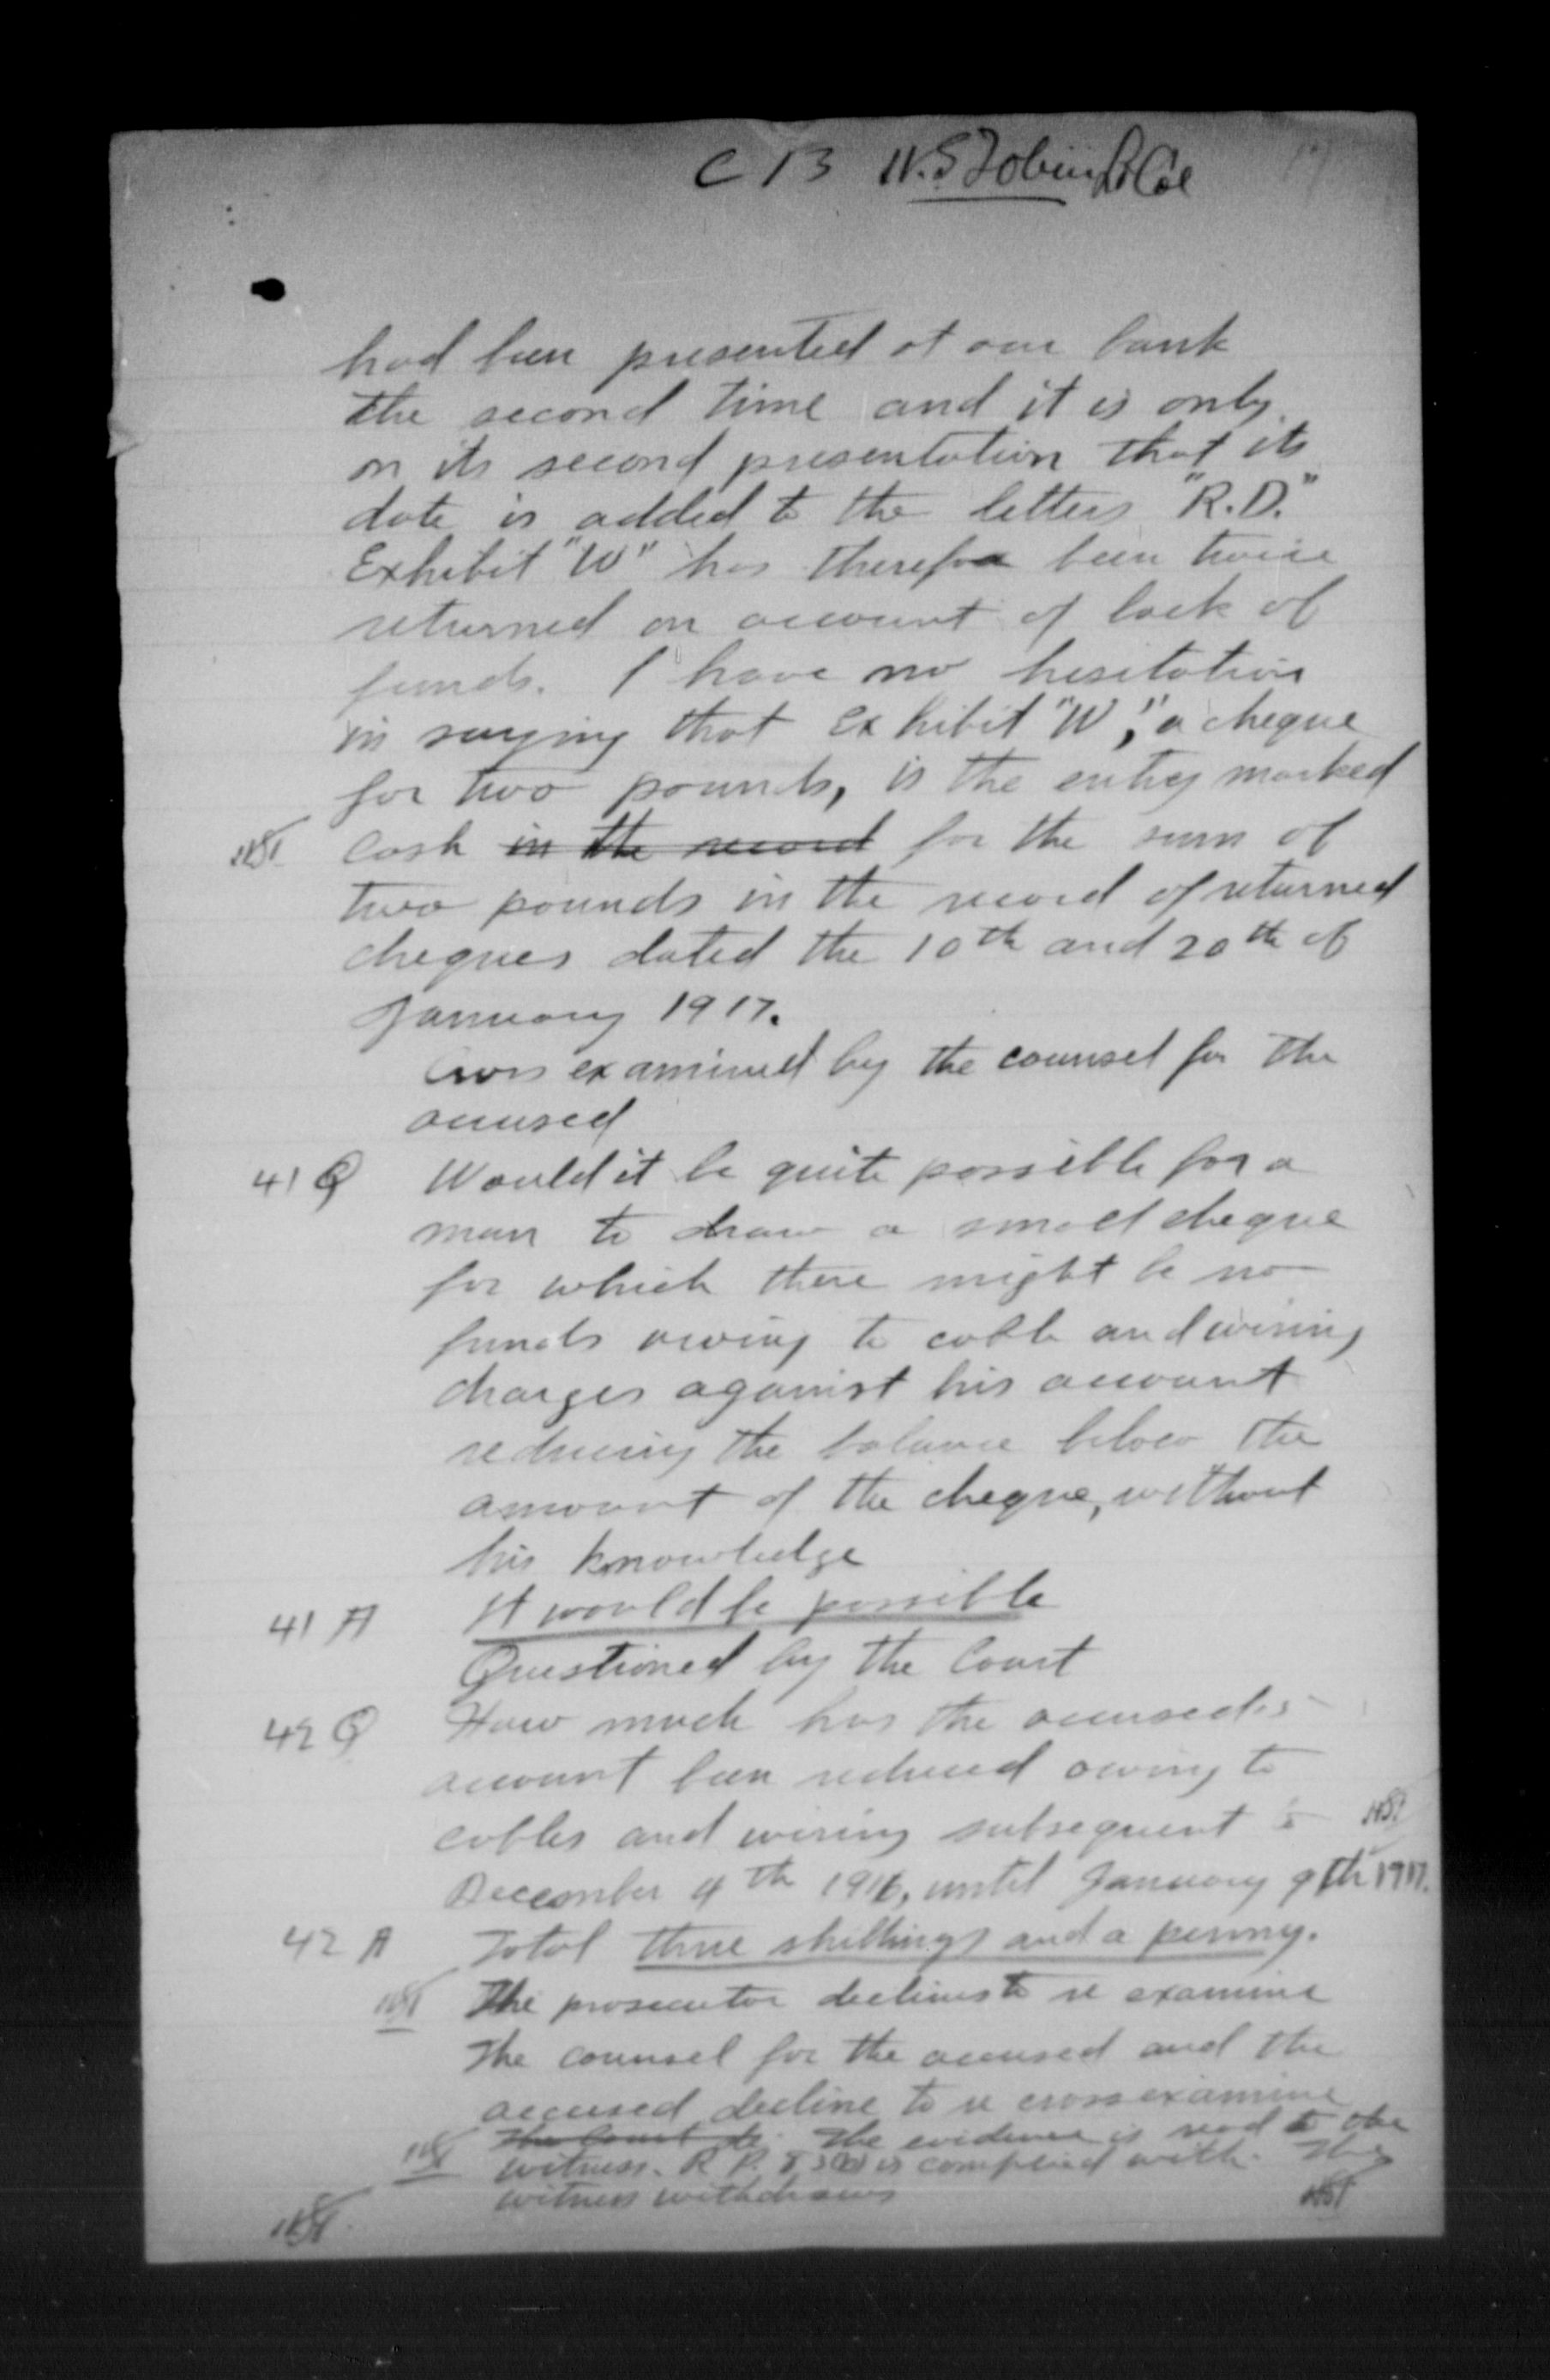 C 13 W.S Tobin Lt Col
had been presented at our bank
the second time and it is only
on its second presentation that its
date is added to the letters "R.D."
Exhibit "W" has therefore been twice
returned on account of lack of
funds. I have no hesitation
in saying that Exhibit "W", a cheque
for two pounds, is the entry marked
WST cash in the record for the sum of
two pounds in the record of returned
cheques dated the 10th and 20th of
January 1917.
Cross examined by the counsel for the
accused
41 Q Would it be quite possible for a
man to draw a small cheque
for which there might be no
funds owing to cable and wiring
charges against his account
reducing the balance below the
amount of the cheque, without
his knowledge
41 A It would be possible
Questioned by the Court
42 Q How much has the accused's
account been reduced owing to
cables and wiring subsequent to WST
December 4th 1916, until January 9th 1917.
42 A Total three shillings and a penny.
WST The prosecutor declines to re examine
The counsel for the accused and the
accused decline to re crossexamine
WST The Court de The evidence is read to the
witness. R.P. is complied with. The
witness withdraws WST
WST